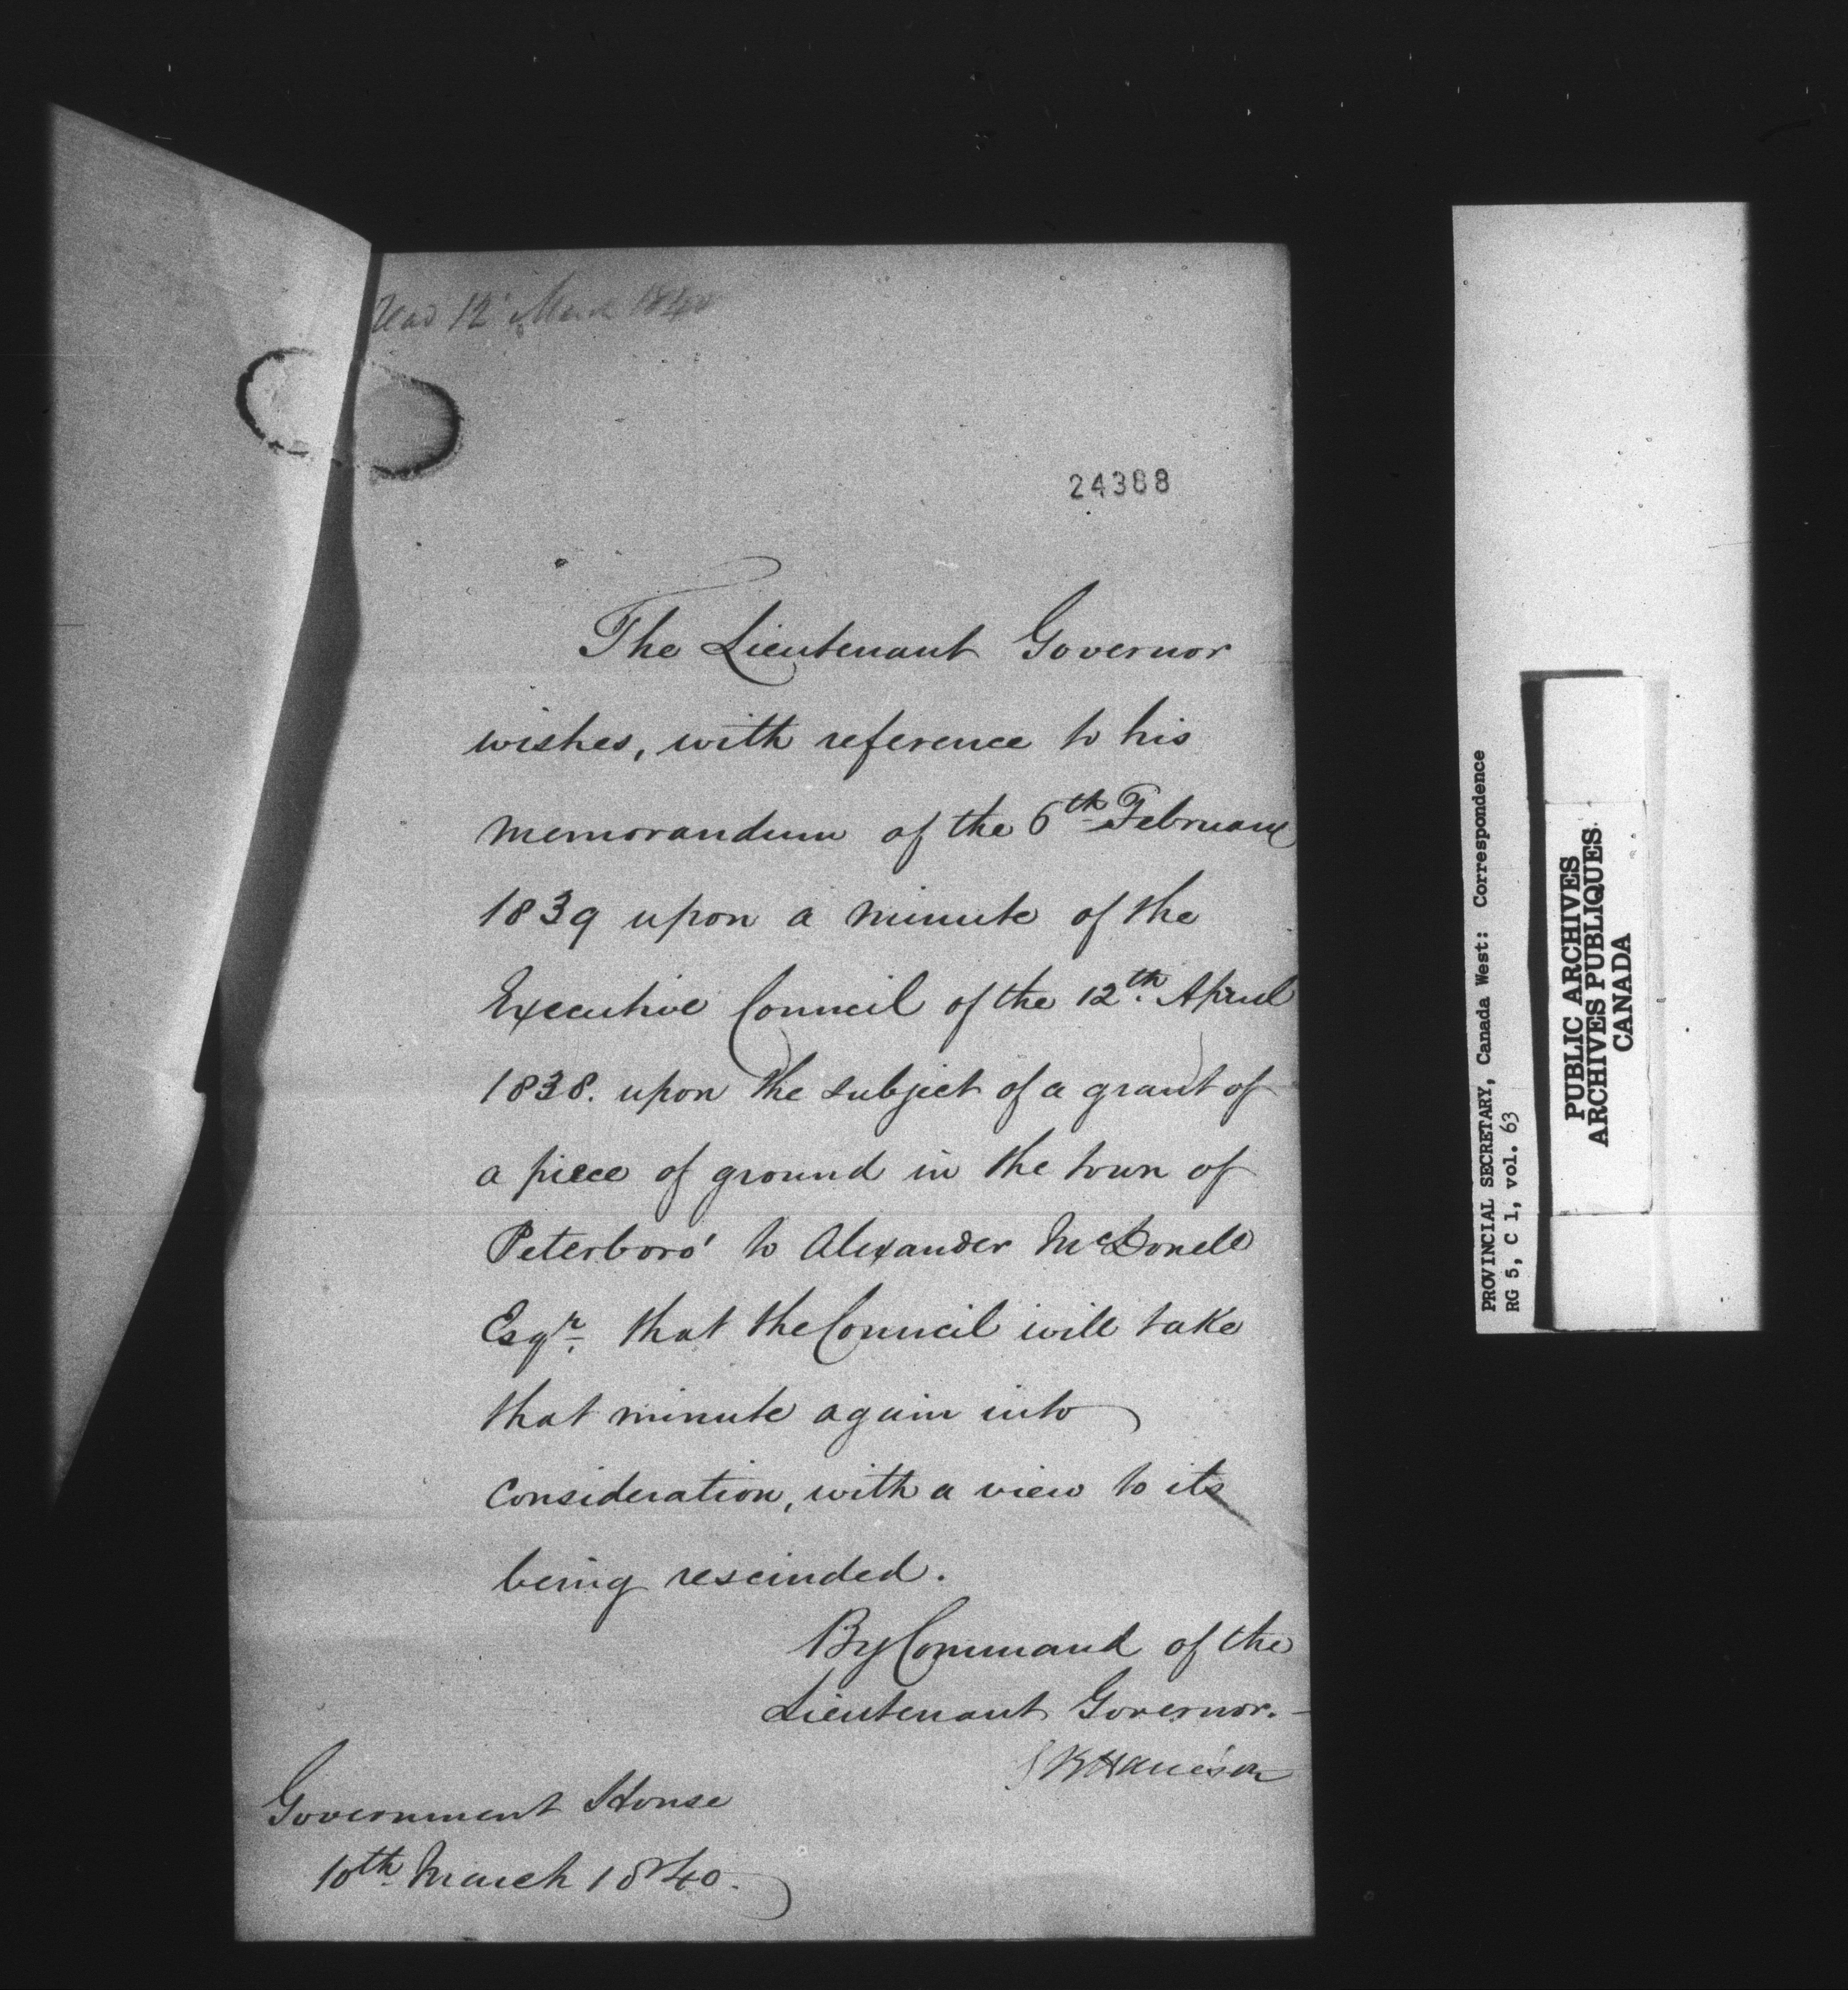 Read 12 March 1840
24388
The Lieutenant Governor
wishes, with reference to his
memorandum of the 6th February
1839 upon a minute of the
Executive Council of the 12th. April
1838. upon the subject of a grant of
a piece of ground in the town of
Peterboro' to Alexander McDonell
Esqr. that the Council will take
that minute again into
consideration, with a view to its
being rescinded.
By Command of the
Lieutenant Governor.
S B Harrison
Government House
10th. March 1840.
PROVINCIAL SECRETARY, Canada West: Correspondence
RG 5, C 1, vol. 63
PUBLIC ARCHIVES
ARCHIVES PUBLIQUES
CANADA